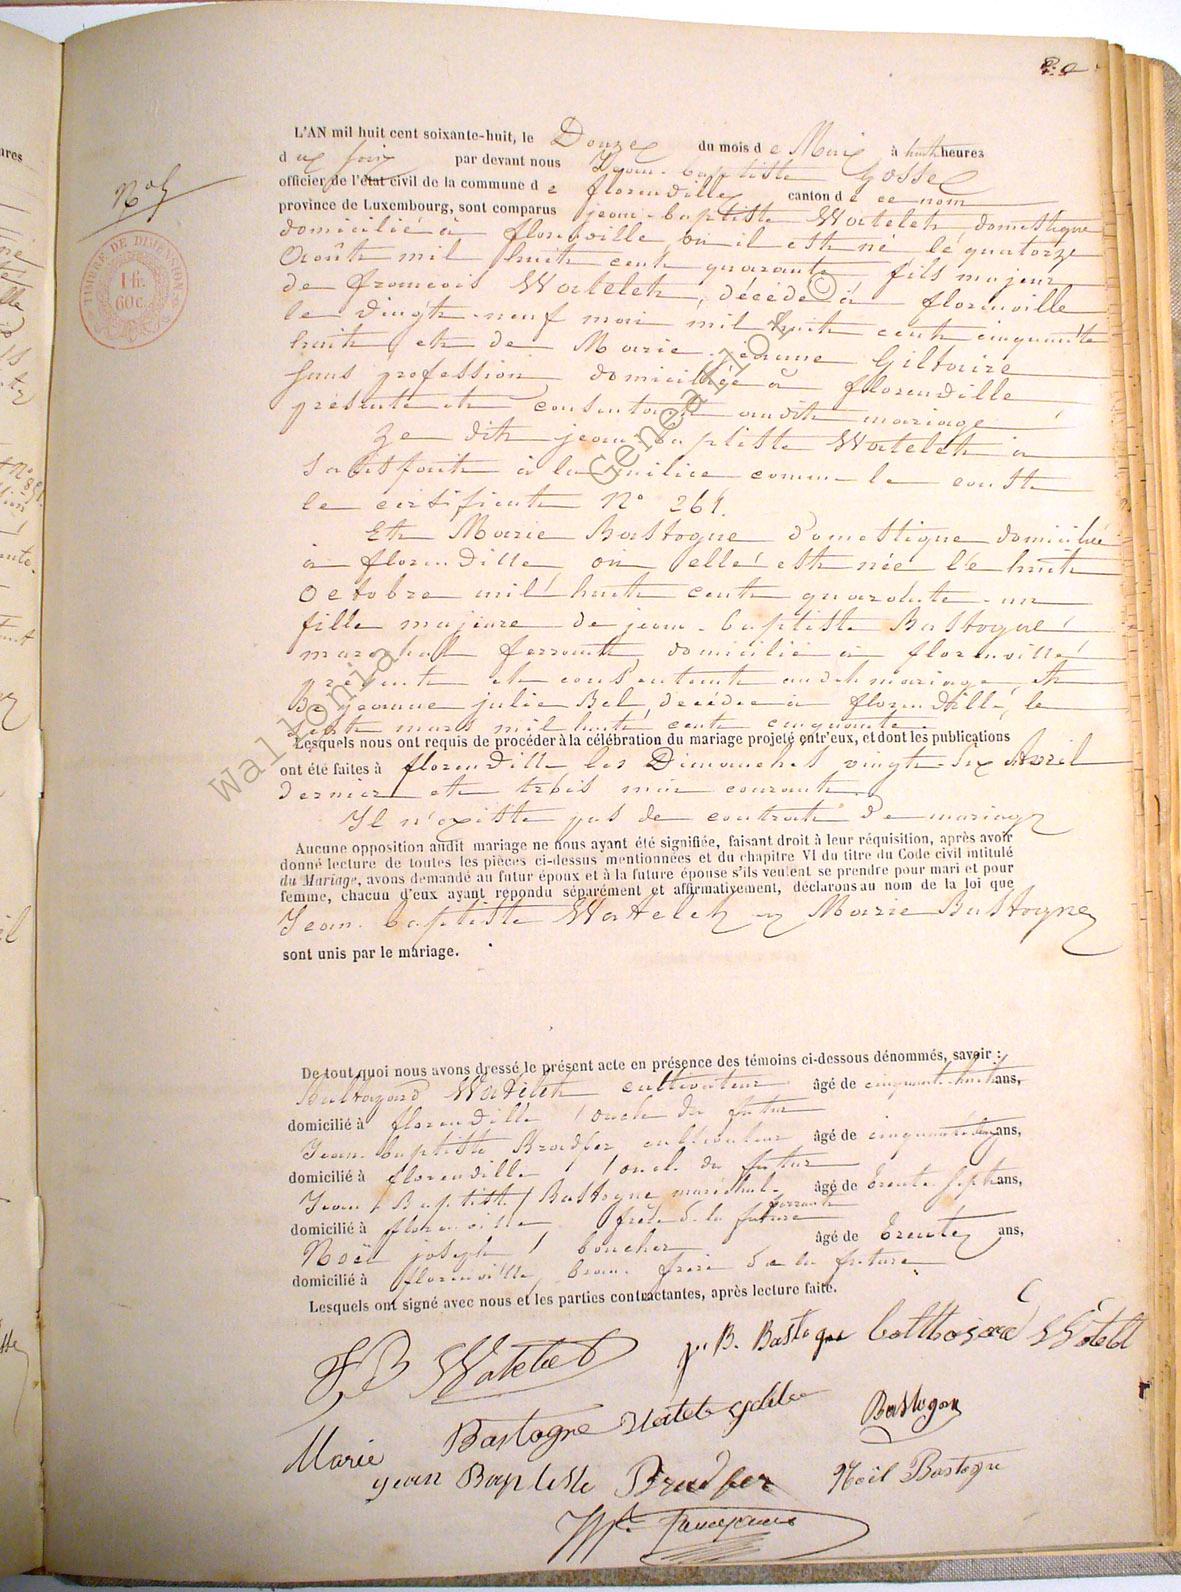 L'AN mil huit cent soixante-huit, le Douze du mois de Mai à huit heures
du soir par devant nous Jean-baptiste Gosse
officier de l'état civil de la commune de florenville canton de ce nom
province de Luxembourg, sont comparus jean-baptiste Watelet, domestique
domicilié à florenville où il est né le quatorze
Août mil huit cent quarante fils majeur
de françois Watelet, décédé à florenville
le vingt-neuf mai mil huit cent cinquante
huit et de Marie-jeanne Giltaire
sans profession, domiciliée à florenville
présente et consentant audit mariage
Le dit jean baptiste Watelet a
satisfait à la milice comme le conste
le certificat N° 261.
Et Marie Bastogne domestique domiciliée
à florenville où elle est née le huit
Octobre mil huit cent quarante-un
fille majeure de jean-baptiste Bastogne
marechal ferrant, domicilié à florenville
présent et consentant audit mariage, et
De jeanne julie Bel, décédée à florenville, le
sept mars mil huit cent cinquante.
Lesquels nous ont requis de procéder à la célébration du mariage projeté entr'eux, et dont les publications
ont été faites à florenville les Dimanches vingt-six Avril
dernier et trois mai courant
Il n'existe pas de contrat de mariage
Aucune opposition audit mariage ne nous ayant été signifiée, faisant droit à leur réquisition, après avoir
donné lecture de toutes les pièces ci-dessus mentionnées et du chapitre VI du titre du Code civil intitulé
du Mariage, avons demandé au futur époux et à la future épouse s'ils veulent se prendre pour mari et pour
femme, chacun d'eux ayant répondu séparément et affirmativement, déclarons au nom de la loi que
Jean-baptiste Watelet & Marie Bastogne
sont unis par le mariage.
De tout quoi nous avons dressé le présent acte en présence des témoins ci-dessous dénommés, savoir :
Balthazard Watelet cultivateur âgé de cinquante-huit ans,
domicilié à florenville oncle du futur
Jean-baptiste Bradfer cultivateur âgé de cinquante ans,
domicilié à florenville oncle du futur
Jean Baptiste Bastogne maréchal ferrant âgé de trente sept ans,
domicilié à florenville, frère de la future
Noël joseph boucher âgé de trente ans,
domicilié à florenville, frère de la future
Lesquels ont signé avec nous et les parties contractantes, après lecture faite.
JB Watelet j. B. Bastogne balthasard Watelet
Marie Bastogne Bastogne
jean Baptiste Bradfer Noël Bastogne
TIMBRE DE DIMENSION
1 fr.
60 c.
Wallonia Geneanor ©